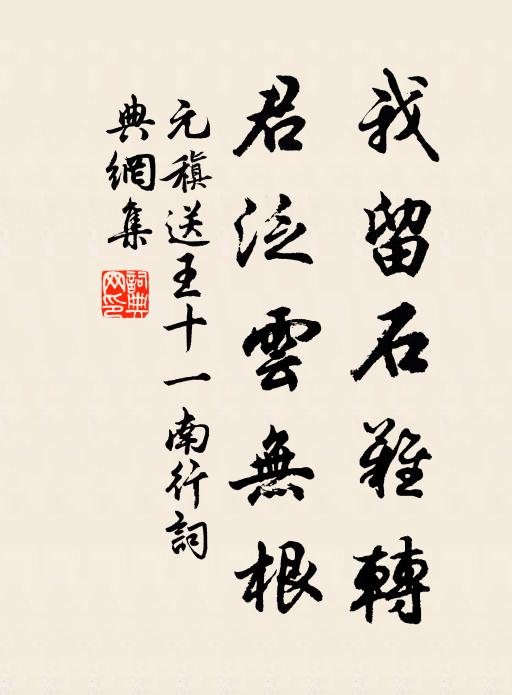 我留石難轉
君泛雲無根
元稹送王十一南行詞
典網集
詞典網印